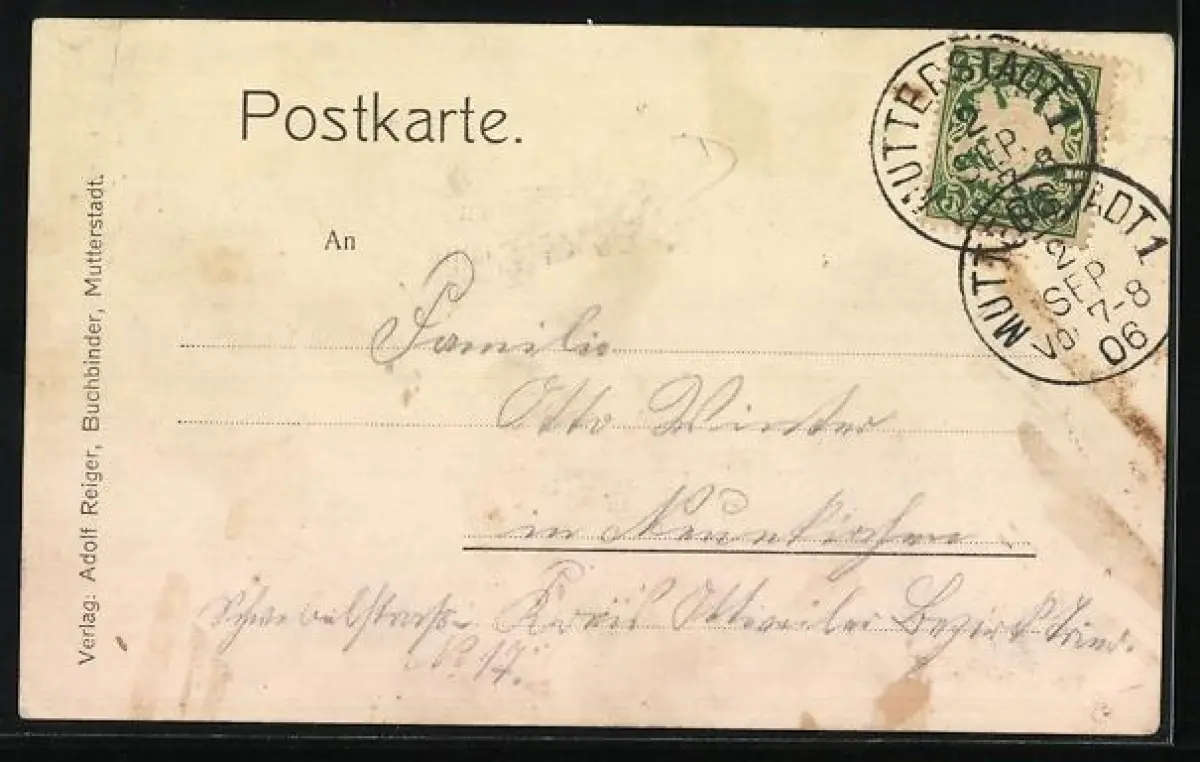 Postkarte.
An
Familie
Otto Winter
in Neunkirchen
Kreis Ottweiler Bezirk Trier.
No 17.
Verlag: Adolf Reiger, Buchbinder, Mutterstadt.
MUTTERSTADT 1
2
SEP.
7-8
MUTTERSTADT 1
2
SEP
7-8
06
5